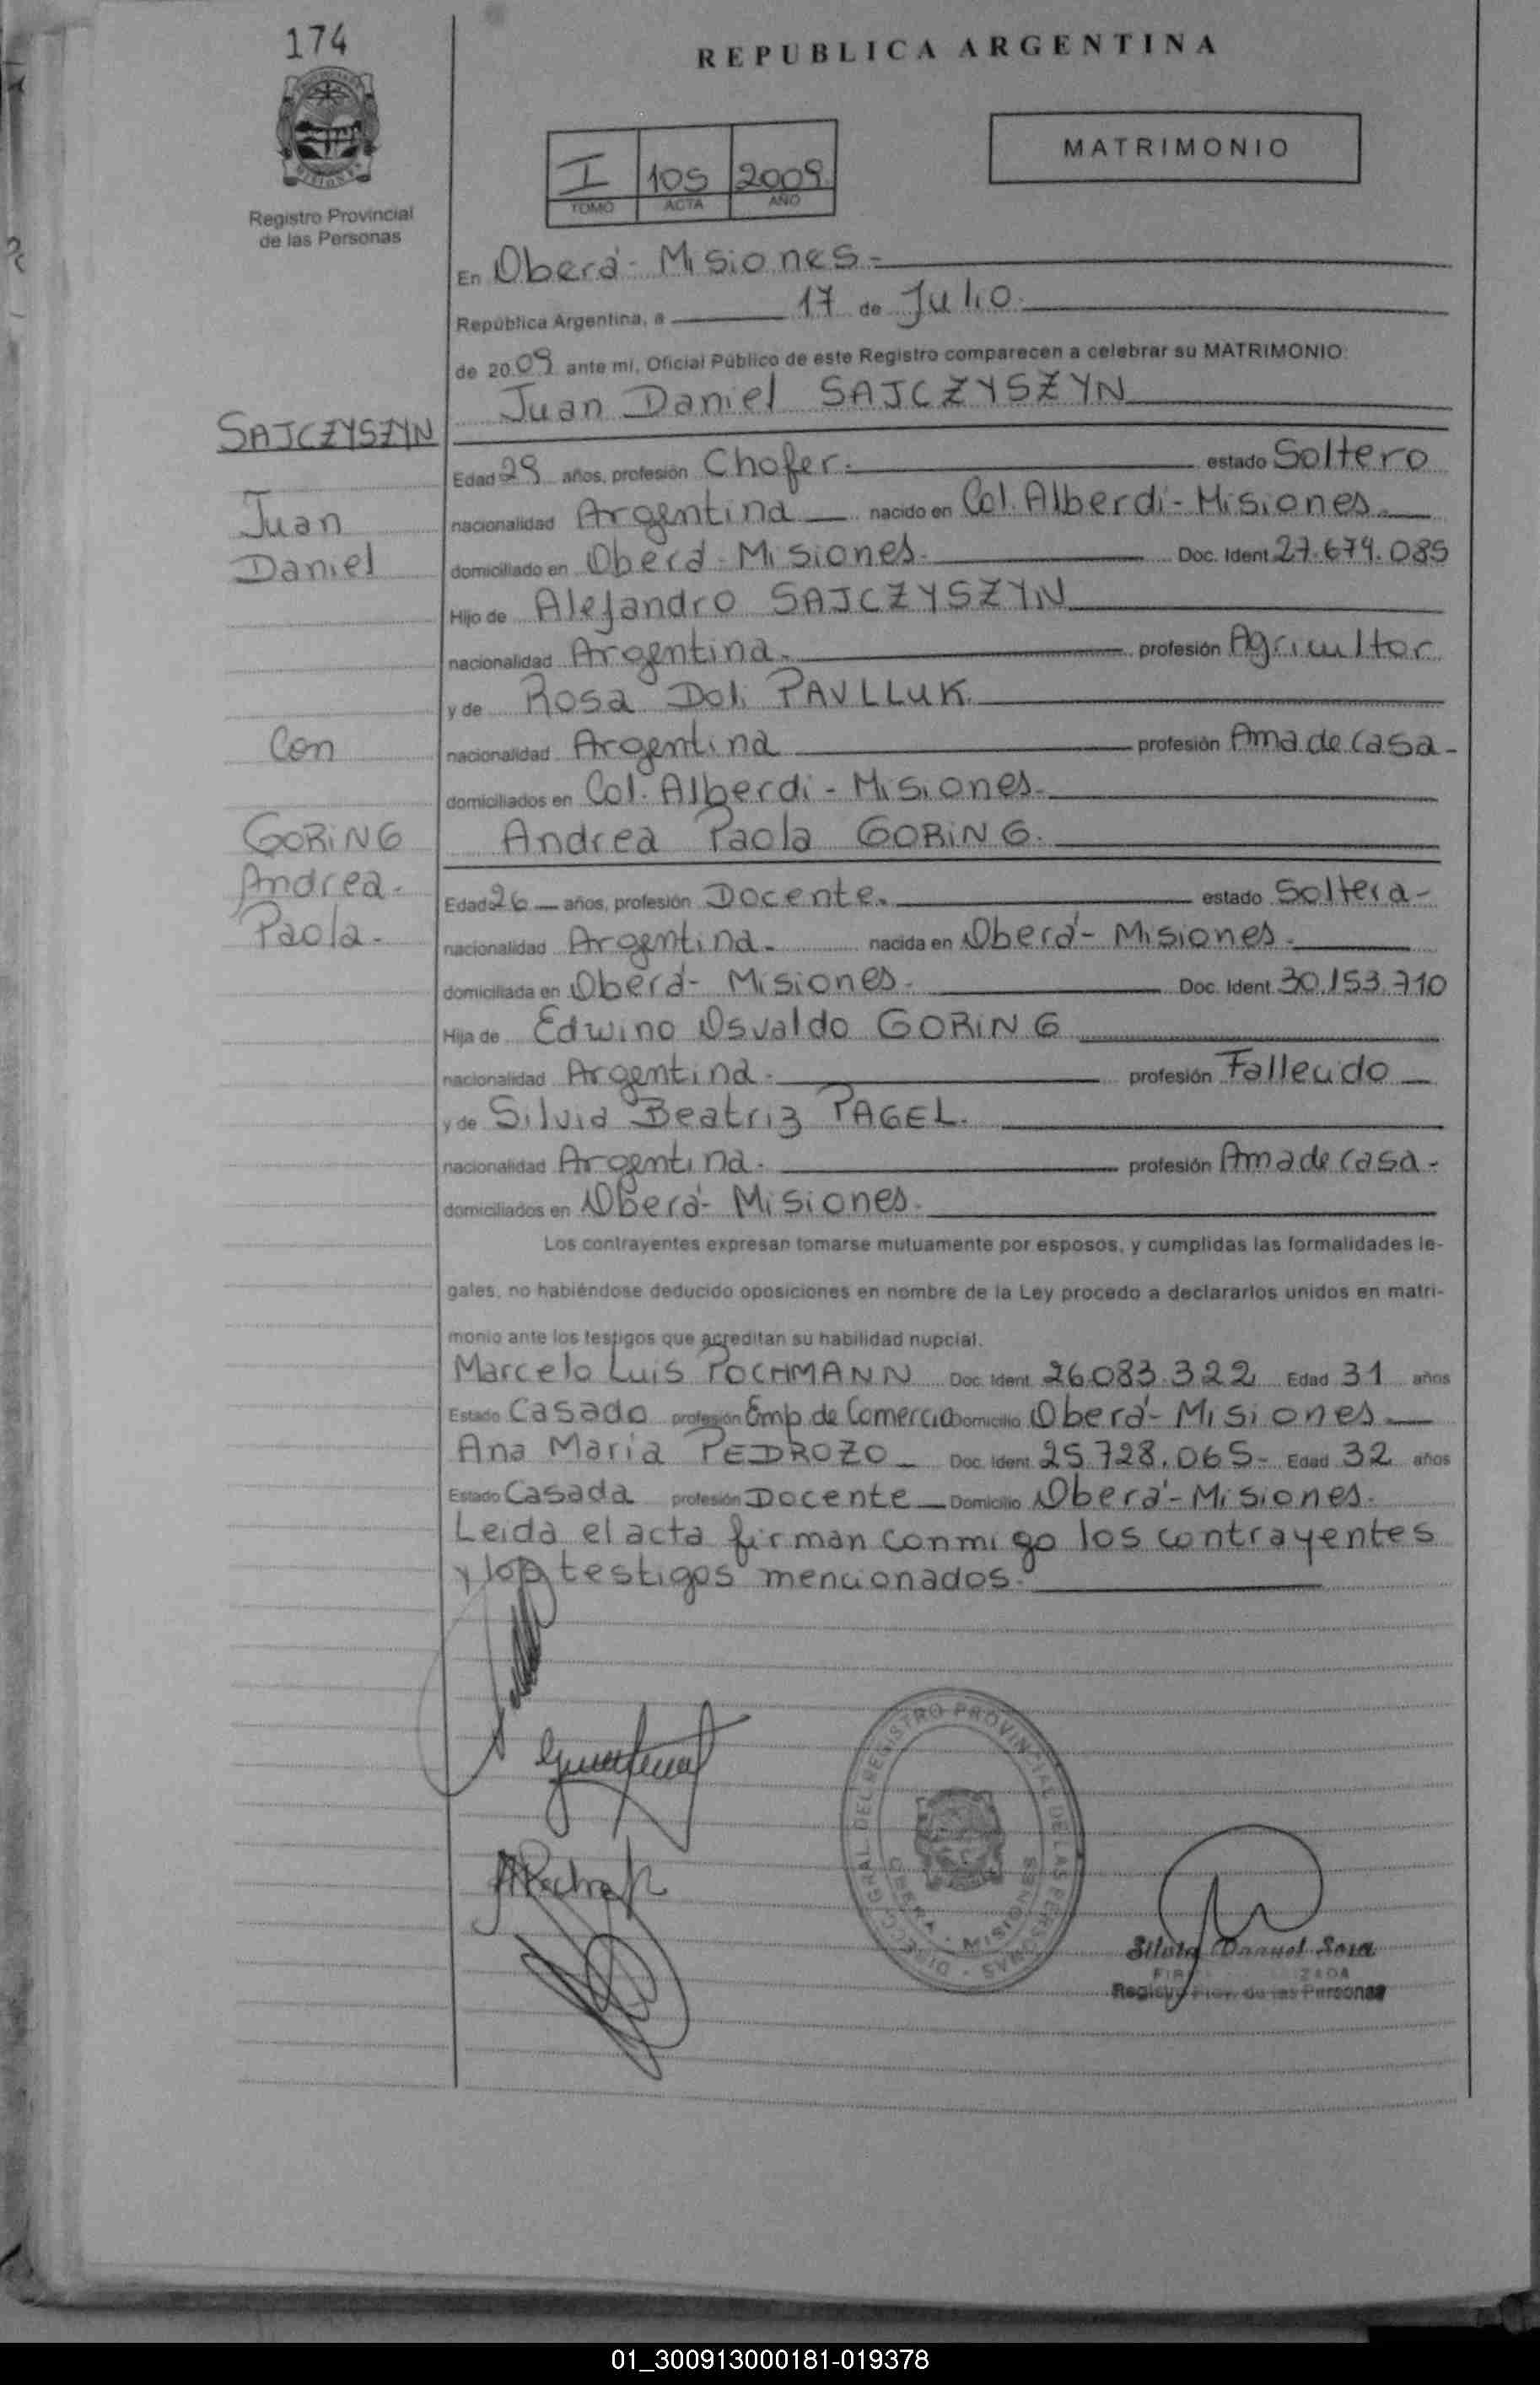 174
REPUBLICA ARGENTINA
MATRIMONIO
I 105 2009
TOMO ACTA AÑO
Registro Provincial
de las Personas
En Oberá - Misiones.-
República Argentina, a 17 de Julio.
de 2009 ante mi, Oficial Público de este Registro comparecen a celebrar su MATRIMONIO:
Juan Daniel SAJCZYSZYN
SAJCZYSZYN
Edad 29 años, profesión Chofer. estado Soltero
Juan
nacionalidad Argentina nacido en Col. Alberdi - Misiones.
Daniel
domiciliado en Oberá - Misiones. Doc. Ident. 27.674.085
Hijo de Alejandro SAJCZYSZYN
nacionalidad Argentina. profesión Agricultor
y de Rosa Doli PAVLLUK.
Con
nacionalidad Argentina profesión Ama de casa -
domiciliados en Col. Alberdi - Misiones.
GORING
Andrea Paola GORING.
Andrea.
Edad 26 años, profesión Docente. estado Soltera -
Paola -
nacionalidad Argentina. nacida en Oberá - Misiones.
domiciliada en Oberá - Misiones. Doc. Ident. 30.153.710
Hija de Edwino Osvaldo GORING
nacionalidad Argentina. profesión Fallecido
y de Silvia Beatriz PAGEL.
nacionalidad Argentina. profesión Ama de casa -
domiciliados en Oberá - Misiones.
Los contrayentes expresan tomarse mutuamente por esposos, y cumplidas las formalidades le-
gales, no habiéndose deducido oposiciones en nombre de la Ley procedo a declararlos unidos en matri-
monio ante los testigos que acreditan su habilidad nupcial.
Marcelo Luis POCHMANN Doc. Ident. 26.083.322 Edad 31 años
Estado Casado profesión Emp. de Comercio Domicilio Oberá - Misiones.
Ana Maria PEDROZO Doc. Ident. 25.728.065 - Edad 32 años
Estado Casada profesión Docente Domicilio Oberá - Misiones.
Leida el acta firman conmigo los contrayentes
y los testigos mencionados.
DIRECC. GRAL. DEL REGISTRO PROVINCIAL DE LAS PERSONAS
OBERA - MISIONES
Manuel Sosa
Registro Prov. de las Personas
01_300913000181-019378